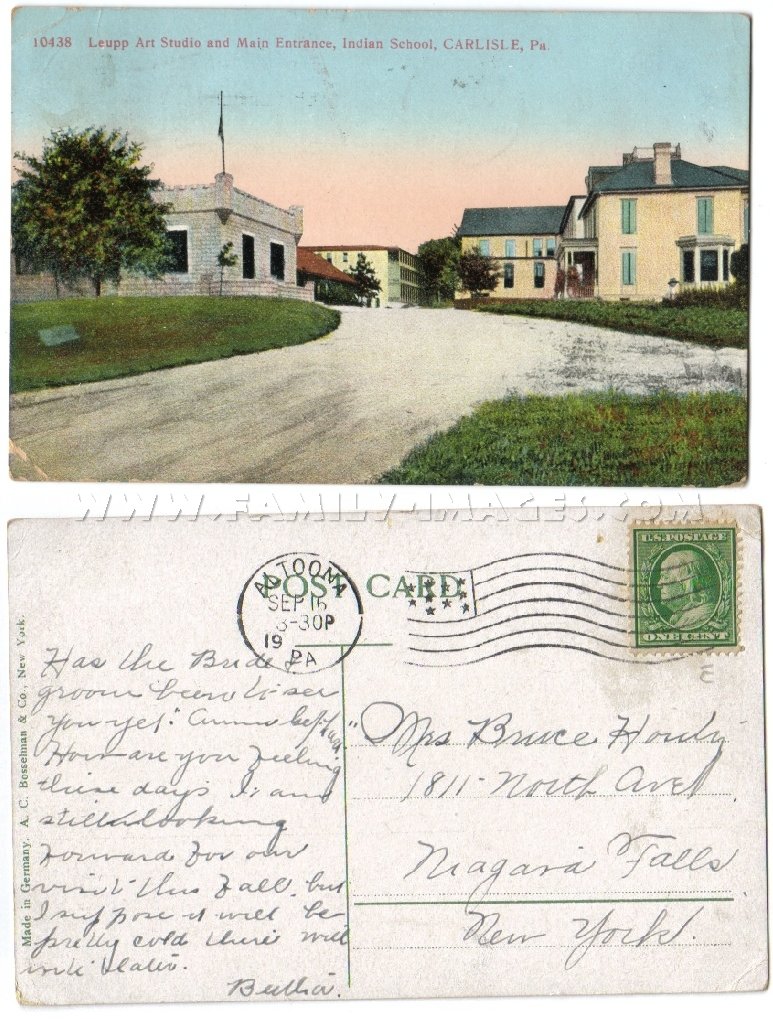 10438 Leupp Art Studio and Main Entrance, Indian School, CARLISLE, Pa.
WWW.FAMILY-IMAGES.COM
POST CARD
ALTOONA
SEP 16
3-30P
19
PA
U.S. POSTAGE
ONE CENT
Made in Germany. A. C. Bosselman & Co., New York.
Has the Bride
groom been to see
you yet?
How are you feeling
these days I am
still looking
forward for our
visit this Fall, but
I suppose it will be
pretty cold there will
write later.
Bertha.
Mrs Bruce
1811 North Ave.
Niagara Falls
New York.